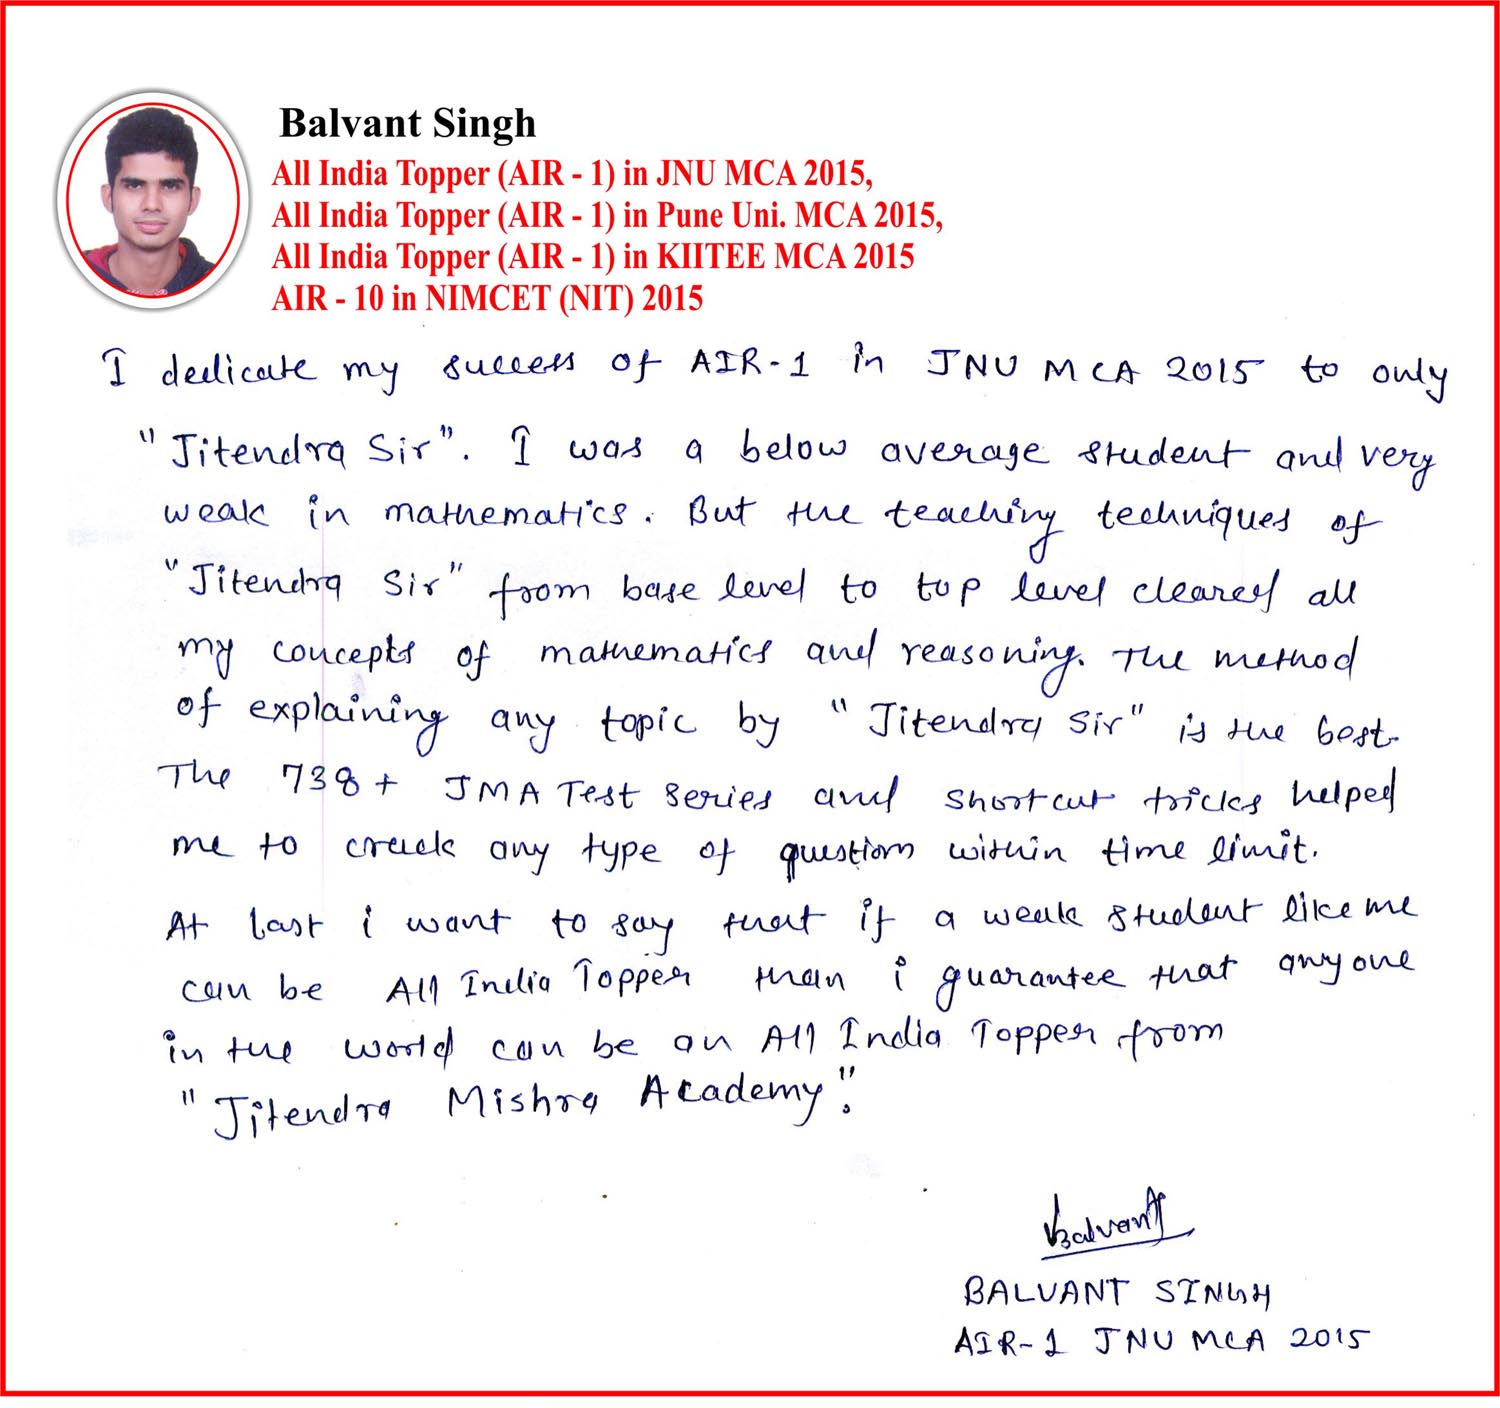 Balvant Singh
All India Topper (AIR - 1) in JNU MCA 2015,
All India Topper (AIR - 1) in Pune Uni. MCA 2015,
All India Topper (AIR - 1) in KIITEE MCA 2015
AIR - 10 in NIMCET (NIT) 2015
I dedicate my success of AIR-1 in JNU MCA 2015 to only
"Jitendra Sir". I was a below average student and very
weak in mathematics. But the teaching techniques of
"Jitendra Sir" from base level to top level cleared all
my concepts of mathematics and reasoning. The method
of explaining any topic by "Jitendra Sir" is the best.
The 738+ JMA Test series and shortcut tricks helped
me to crack any type of question within time limit.
At last i want to say that if a weak student like me
can be All India Topper than i guarantee that anyone
in the world can be an All India Topper from
"Jitendra Mishra Academy".
Balvant
BALVANT SINGH
AIR-1 JNU MCA 2015